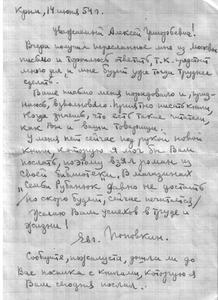 Крым, 14 июня 54 г.
Уважаемый Алексей Григорьевич!
Вчера получил пересланное мне из Москвы
письмо и тороплюсь ответить, т.к. уедет
мне будет уже тогда труднее
сделать.
Ваше письмо меня порадовало и,
взволновало. Приятно писать книги,
когда знаешь, что есть такие читатели,
как Вы и Ваши товарищи.
У меня нет сейчас под рукой новой
книги, которую я мог бы Вам
послать, поэтому взял роман из
своей библиотеки. В магазинах
"Семьи Рубанюк" давно не достать
но скоро будет, сейчас печатается
Желаю Вам успехов в труде и
жизни!
Евг. Поповкин.
Сообщите, пожалуйста, дошла ли до
Вас посылка с книгами, которую я
Вам сегодня послал.